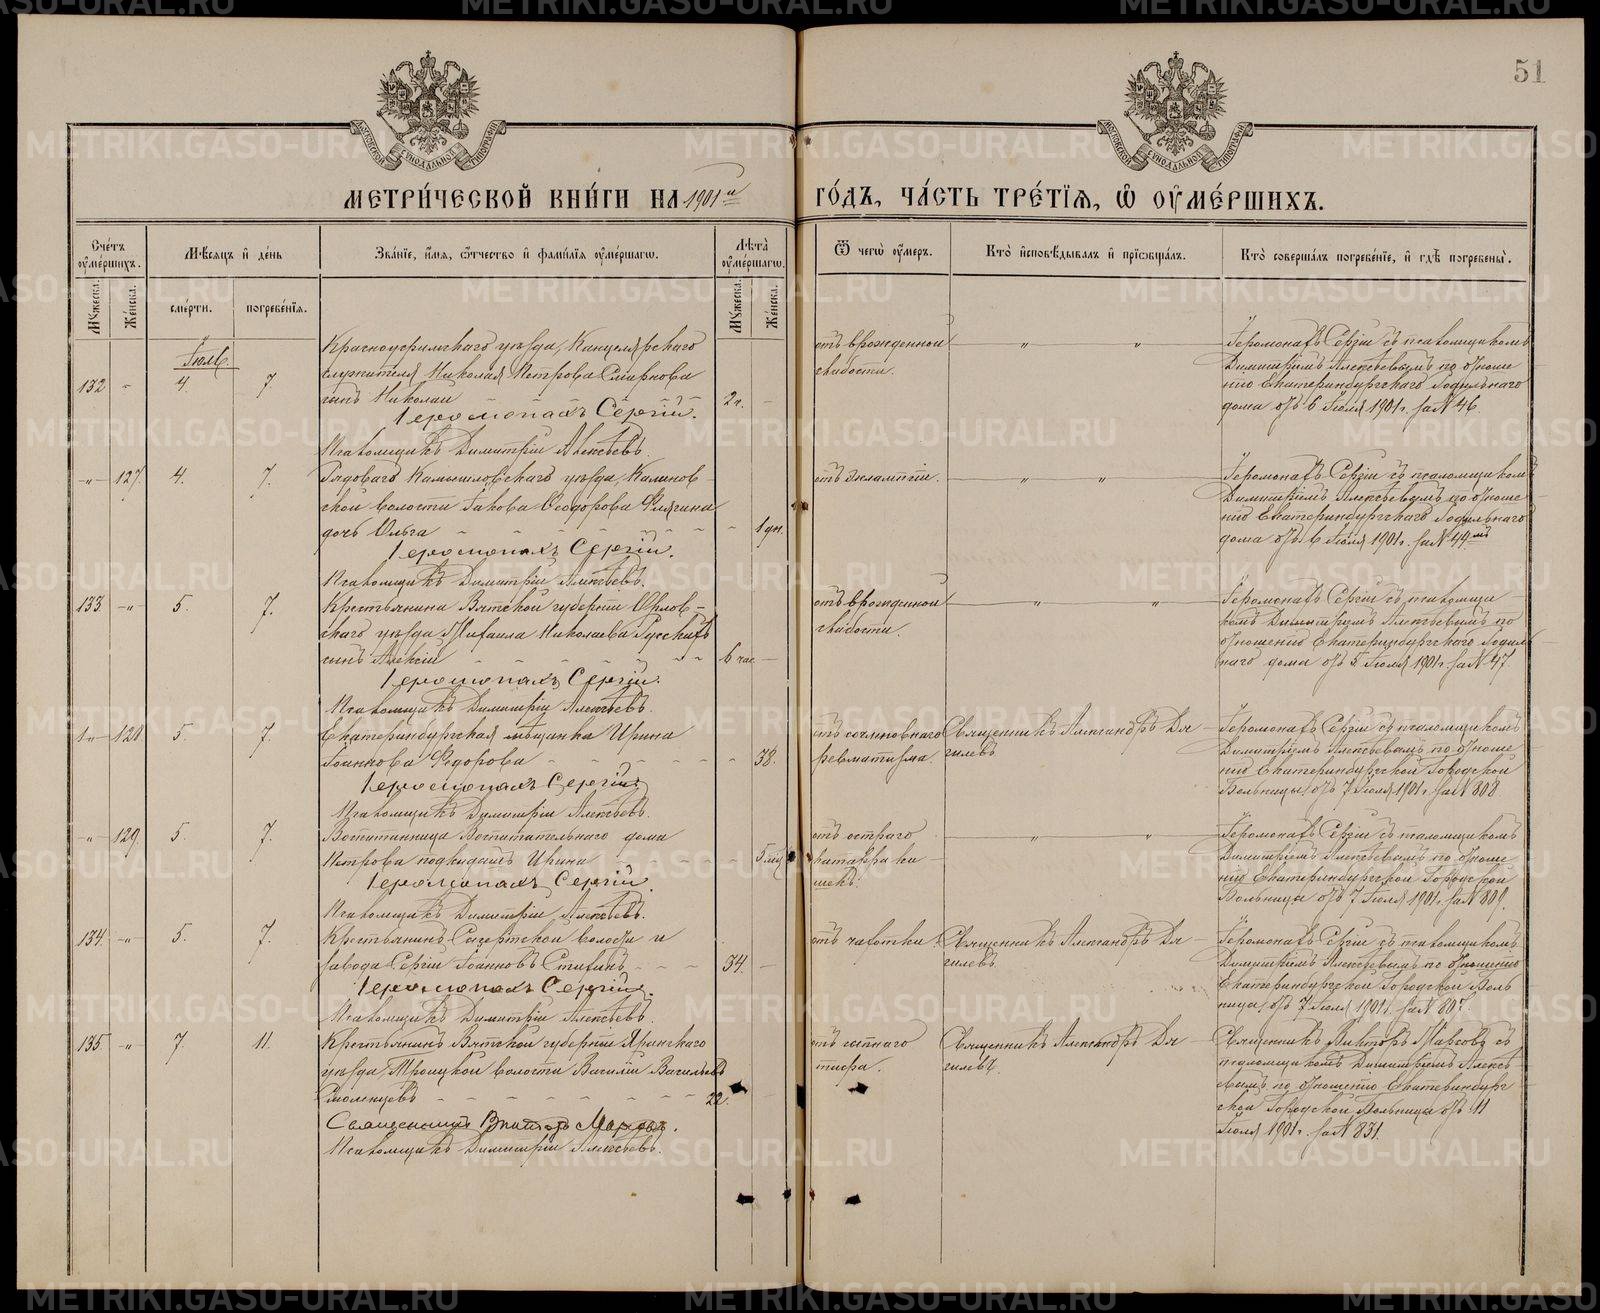 51
МОСКОВСКОЙ СѴНОДАЛЬНОЙ ТИПОГРАФІИ
МОСКОВСКОЙ СѴНОДАЛЬНОЙ ТИПОГРАФІИ
МЕТРИ́ЧЕСКОЙ КНИ́ГИ НА 1901й ГО́ДЪ, ЧА́СТЬ ТРЕ́ТІѦ, Ѡ҆ ОУ҆МЕ́РШИХЪ.
Сче́тъ оу҆ме́ршихъ.
Мѣ́сяцъ и҆ де́нь
Зва́ніе, и҆́мя, ѻ҆́тчество и҆ фами́лія оу҆ме́ршагѡ.
Лѣ́та оу҆ме́ршагѡ.
Ѿ чегѡ̀ оу҆́меръ.
Кто̀ и҆сповѣ́дывалъ и҆ прїѡбща́лъ.
Кто̀ соверша́лъ погребе́ніе, и҆ гдѣ̀ погребены̀.
Му́жеска. Же́нска.
сме́рти. погребе́нія.
Му́жеска. Же́нска.
Іюль
132 - 4. 7
Красноуфимскаго уѣзда, Канцелярскаго
служителя Николая Петрова Смирнова
сынъ Николай 2 ч. -
Іеромонахъ Сергій.
Псаломщикъ Димитрій Алексѣевъ.
отъ врожденной
слабости.
" "
Іеромонахъ Сергій съ псаломщикомъ
Димитріемъ Алексѣевымъ по отноше
нію Екатеринбургскаго Родильнаго
дома отъ 6 Іюля 1901 г. за N 46.
-"- 127. 4. 7.
Рядоваго Камышловскаго уѣзда, Калинов-
ской волости Іакова Ѳеодорова
дочь Ольга - 1 дн.
Іеромонахъ Сергій.
Псаломщикъ Димитрій Алексѣевъ.
отъ эклампсіи.
" "
Іеромонахъ Сергій съ псаломщикомъ
Димитріемъ Алексѣевымъ по отноше
нію Екатеринбургскаго Родильнаго
дома отъ 6 Іюля 1901 г. за N 49мъ
133 -"- 5. 7.
Крестьянина Вятской губерніи Орлов-
скаго уѣзда Михаила Николаева Русскихъ
сынъ Алексій 6 час -
Іеромонахъ Сергій.
Псаломщикъ Димитрій Алексѣевъ.
отъ врожденной
слабости.
" "
Іеромонахъ Сергій съ псаломщи
комъ Димитріемъ Алексѣевымъ по
отношенію Екатеринбургскаго Родиль
наго дома отъ 5 Іюля 1901 г. за N 47
128. 5. 7.
Екатеринбургская мѣщанка Ирина
Іоаннова Федорова - 38.
Іеромонахъ Сергій
Псаломщикъ Димитрій Алексѣевъ.
отъ сочленовнаго
ревматизма.
Священникъ Александръ Дя
гилевъ
Іеромонахъ Сергій съ псаломщикомъ
Димитріемъ Алексѣевымъ по отноше
нію Екатеринбургской Городской
Больницы отъ 7 Іюля 1901 г. за N 808
-"- 129. 5. 7.
Воспитанница Воспитательнаго дома
Петрова подкидышъ Ирина 5 мѣ
Іеромонахъ Сергій.
Псаломщикъ Димитрій Алексѣевъ.
отъ остраго
катарра ки-
шекъ.
" "
Іеромонахъ Сергій съ псаломщикомъ
Димитріемъ Алексѣевымъ по отноше
нію Екатеринбургской Городской
Больницы отъ 7 Іюля 1901 г. за N 809.
134. -"- 5. 7.
Крестьянинъ Сысертской волости и
завода Сергій Іоанновъ 34. -
Іеромонахъ Сергій.
Псаломщикъ Димитрій Алексѣевъ.
отъ чахотки.
Священникъ Александръ Дя
гилевъ.
Іеромонахъ Сергій съ псаломщикомъ
Димитріемъ Алексѣевымъ по отношенію
Екатеринбургской Городской Боль
ницы отъ 7 Іюля 1901 г. за N 807.
135. -"- 7. 11.
Крестьянинъ Вятской губерніи Яранскаго
уѣзда, Троицкой волости Василій Васильевъ
Смоленцевъ 22.
Священникъ Викторъ
Псаломщикъ Димитрій Алексѣевъ.
отъ сыпнаго
тифа.
Священникъ Александръ Дя
гилевъ.
Священникъ Викторъ съ
псаломщикомъ Димитріемъ Алексѣ
евымъ по отношенію Екатеринбург
ской Городской Больницы отъ 11
Іюля 1901 г. за N 831.
METRIKI.GASO-URAL.RU